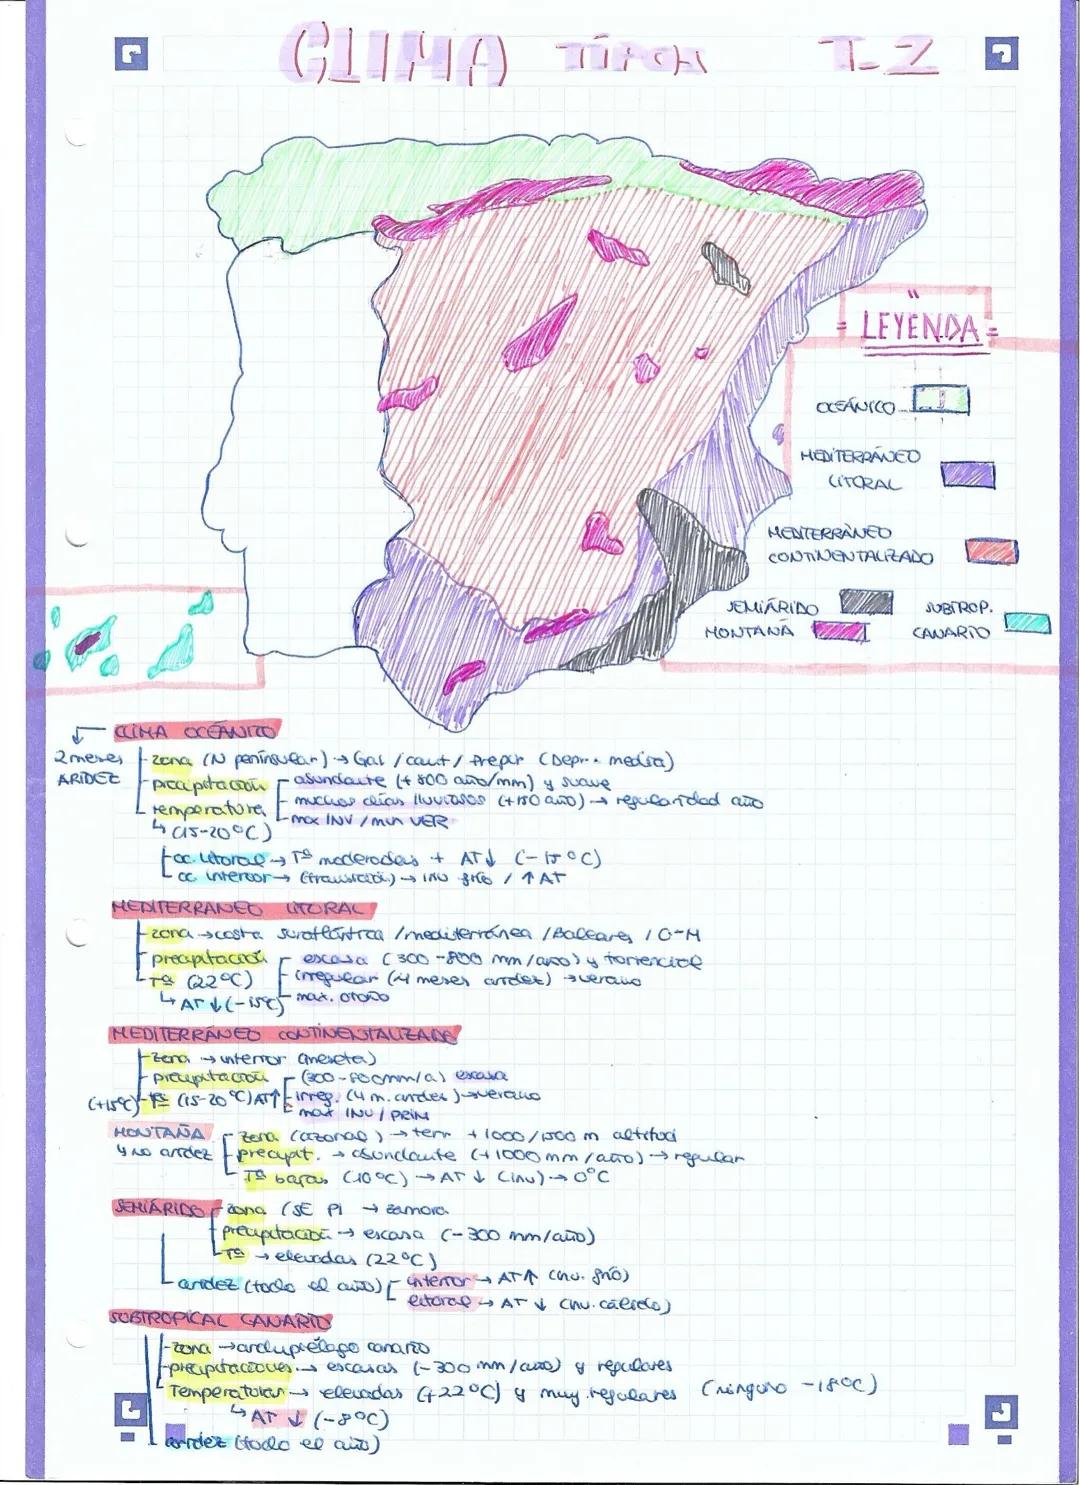 CLIMA TIPOS T.2
LEYENDA
OCEÁNICO
MEDITERRÁNEO
LITORAL
MEDITERRÁNEO
CONTINENTALIZADO
SEMIÁRIDO
SUBTROP.
MONTAÑA
CANARIO
CLIMA OCEÁNICO
2 meses
ARIDEZ
zona (N peninsular) → Gal / cant / Prepir (Depr. media)
precipitación
abundante (+800 año/mm) y suave
temperatura
muchos días lluviosos (+150 año) → regularidad año
↳ (15-20ºC)
max INV / min VER
oc. litoral → Tª moderadas + AT↓ (-15ºC)
oc interior → (transición) → inv frío / ↑AT
MEDITERRANEO LITORAL
zona → costa suratlántica / mediterránea / Baleares / C-M
precipitación
escasa (300-800 mm/año) y torrencial
Tª (22ºC)
irregular (4 meses aridez) → verano
↳ AT ↓ (-15ºC)
max. otoño
MEDITERRÁNEO CONTINENTALIZADO
zona → interior (meseta)
precipitación
(300-800mm/a) escasa
(+15ºC) Tª (15-20ºC) AT↑
irreg. (4 m. aridez) → verano
max INV / PRIM
MONTAÑA
zona (azonal) → terr +1000/1500 m altitud
↳ no aridez
precipit. → abundante (+1000 mm/año) → regular
Tª bajas (10ºC) → AT ↓ (inv) → 0ºC
SEMIÁRIDO
zona (SE PI → zamora
precipitación → escasa (-300 mm/año)
Tª → elevadas (22ºC)
aridez (todo el año)
interior → AT↑ (inv. frío)
litoral → AT ↓ (inv. cálido)
SUBTROPICAL CANARIO
zona → archipiélago canario
precipitaciones → escasas (-300 mm/año) y regulares
Temperaturas → elevadas (+22ºC) y muy regulares (ninguno -18ºC)
↳ AT ↓ (-8ºC)
aridez (todo el año)